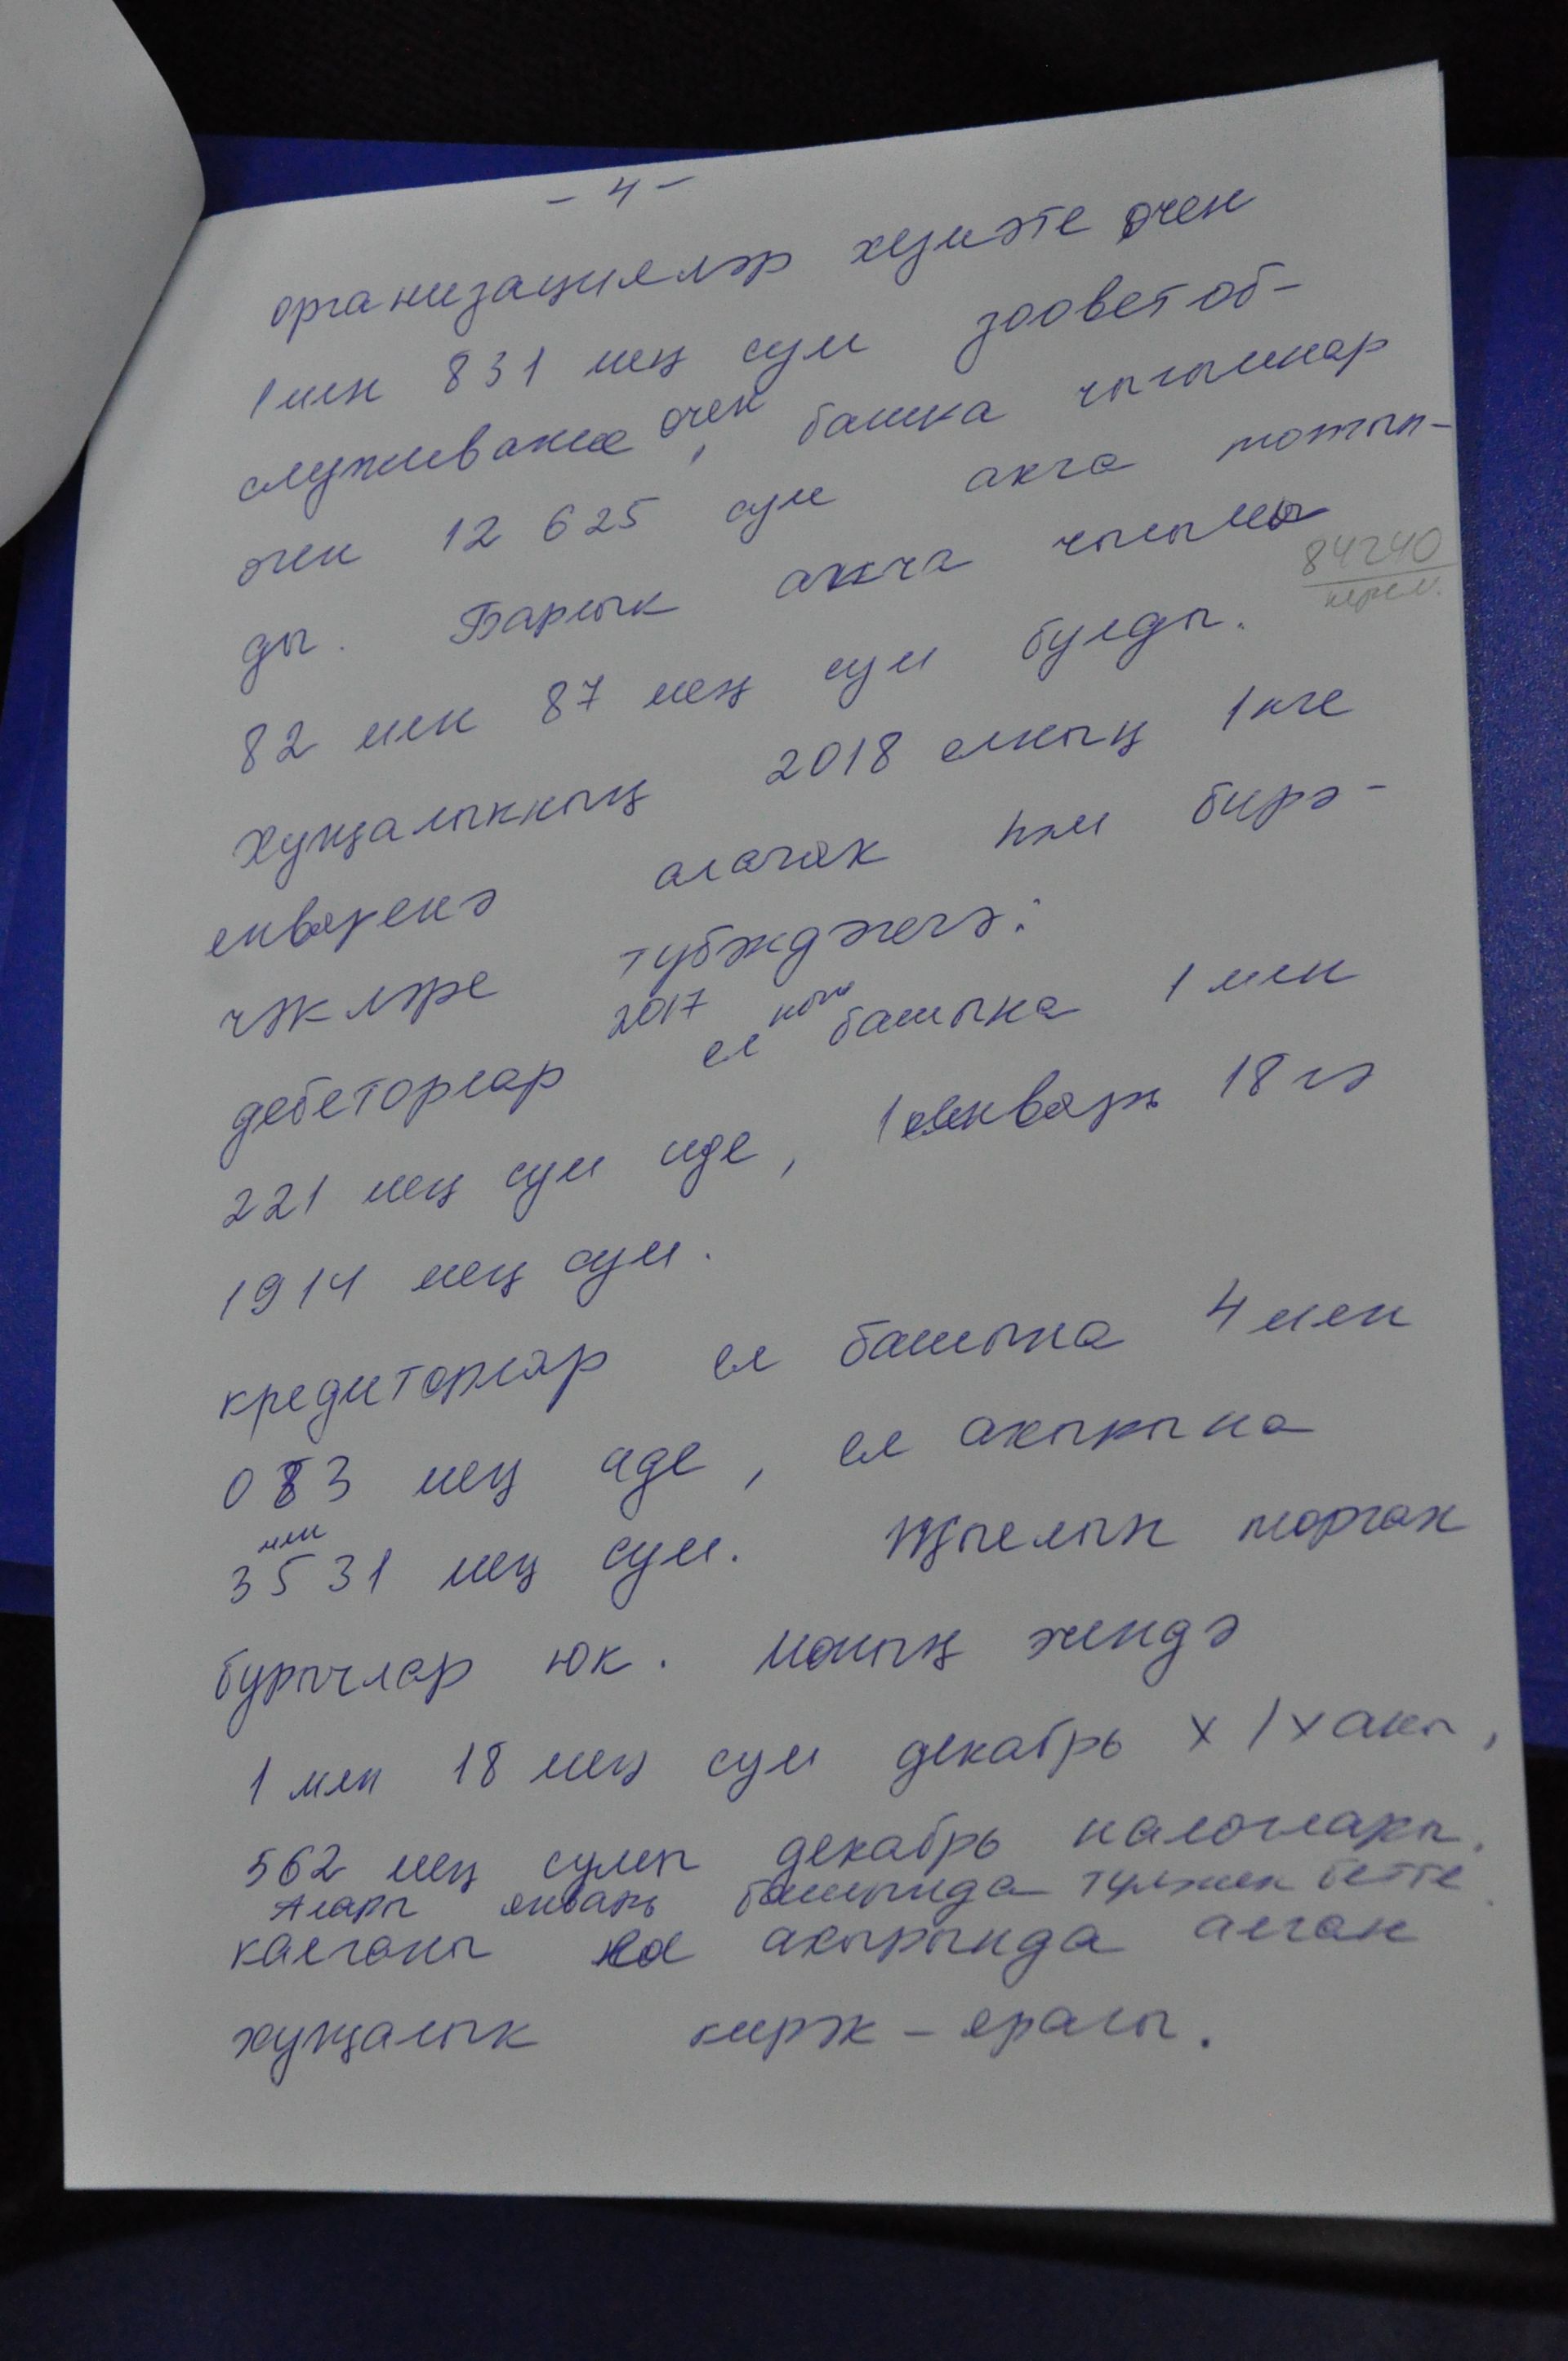 - 4 -
организацияләр хезмәте өчен
1 млн 831 мең сум зооветоб-
служивание өчен, башка чыгымнар
өчен 12 625 сум акча тотыл-
ды. Барлык акча чыгымы
84240
82 млн 87 мең сум булды.
Хуҗалыкның 2018 елның 1нче
енварена алачак һәм бирә-
чәкләре түбәндәгечә:
дебеторлар 2017 ел ның башына 1 млн
221 мең сум иде, 1 январь 18 гә
1914 мең сум.
кредиторлар ел башына 4 млн
083 мең иде, ел ахырына
3 млн 531 мең сум. Җыелып торган
бурычлар юк. Моның эчендә
1 млн 18 мең сум декабрь х/хакы,
562 мең сумы декабрь налоглары.
Алары январь башында түләнеп бетте
калганы ел ахырында алган
хуҗалык кирәк-ярагы.